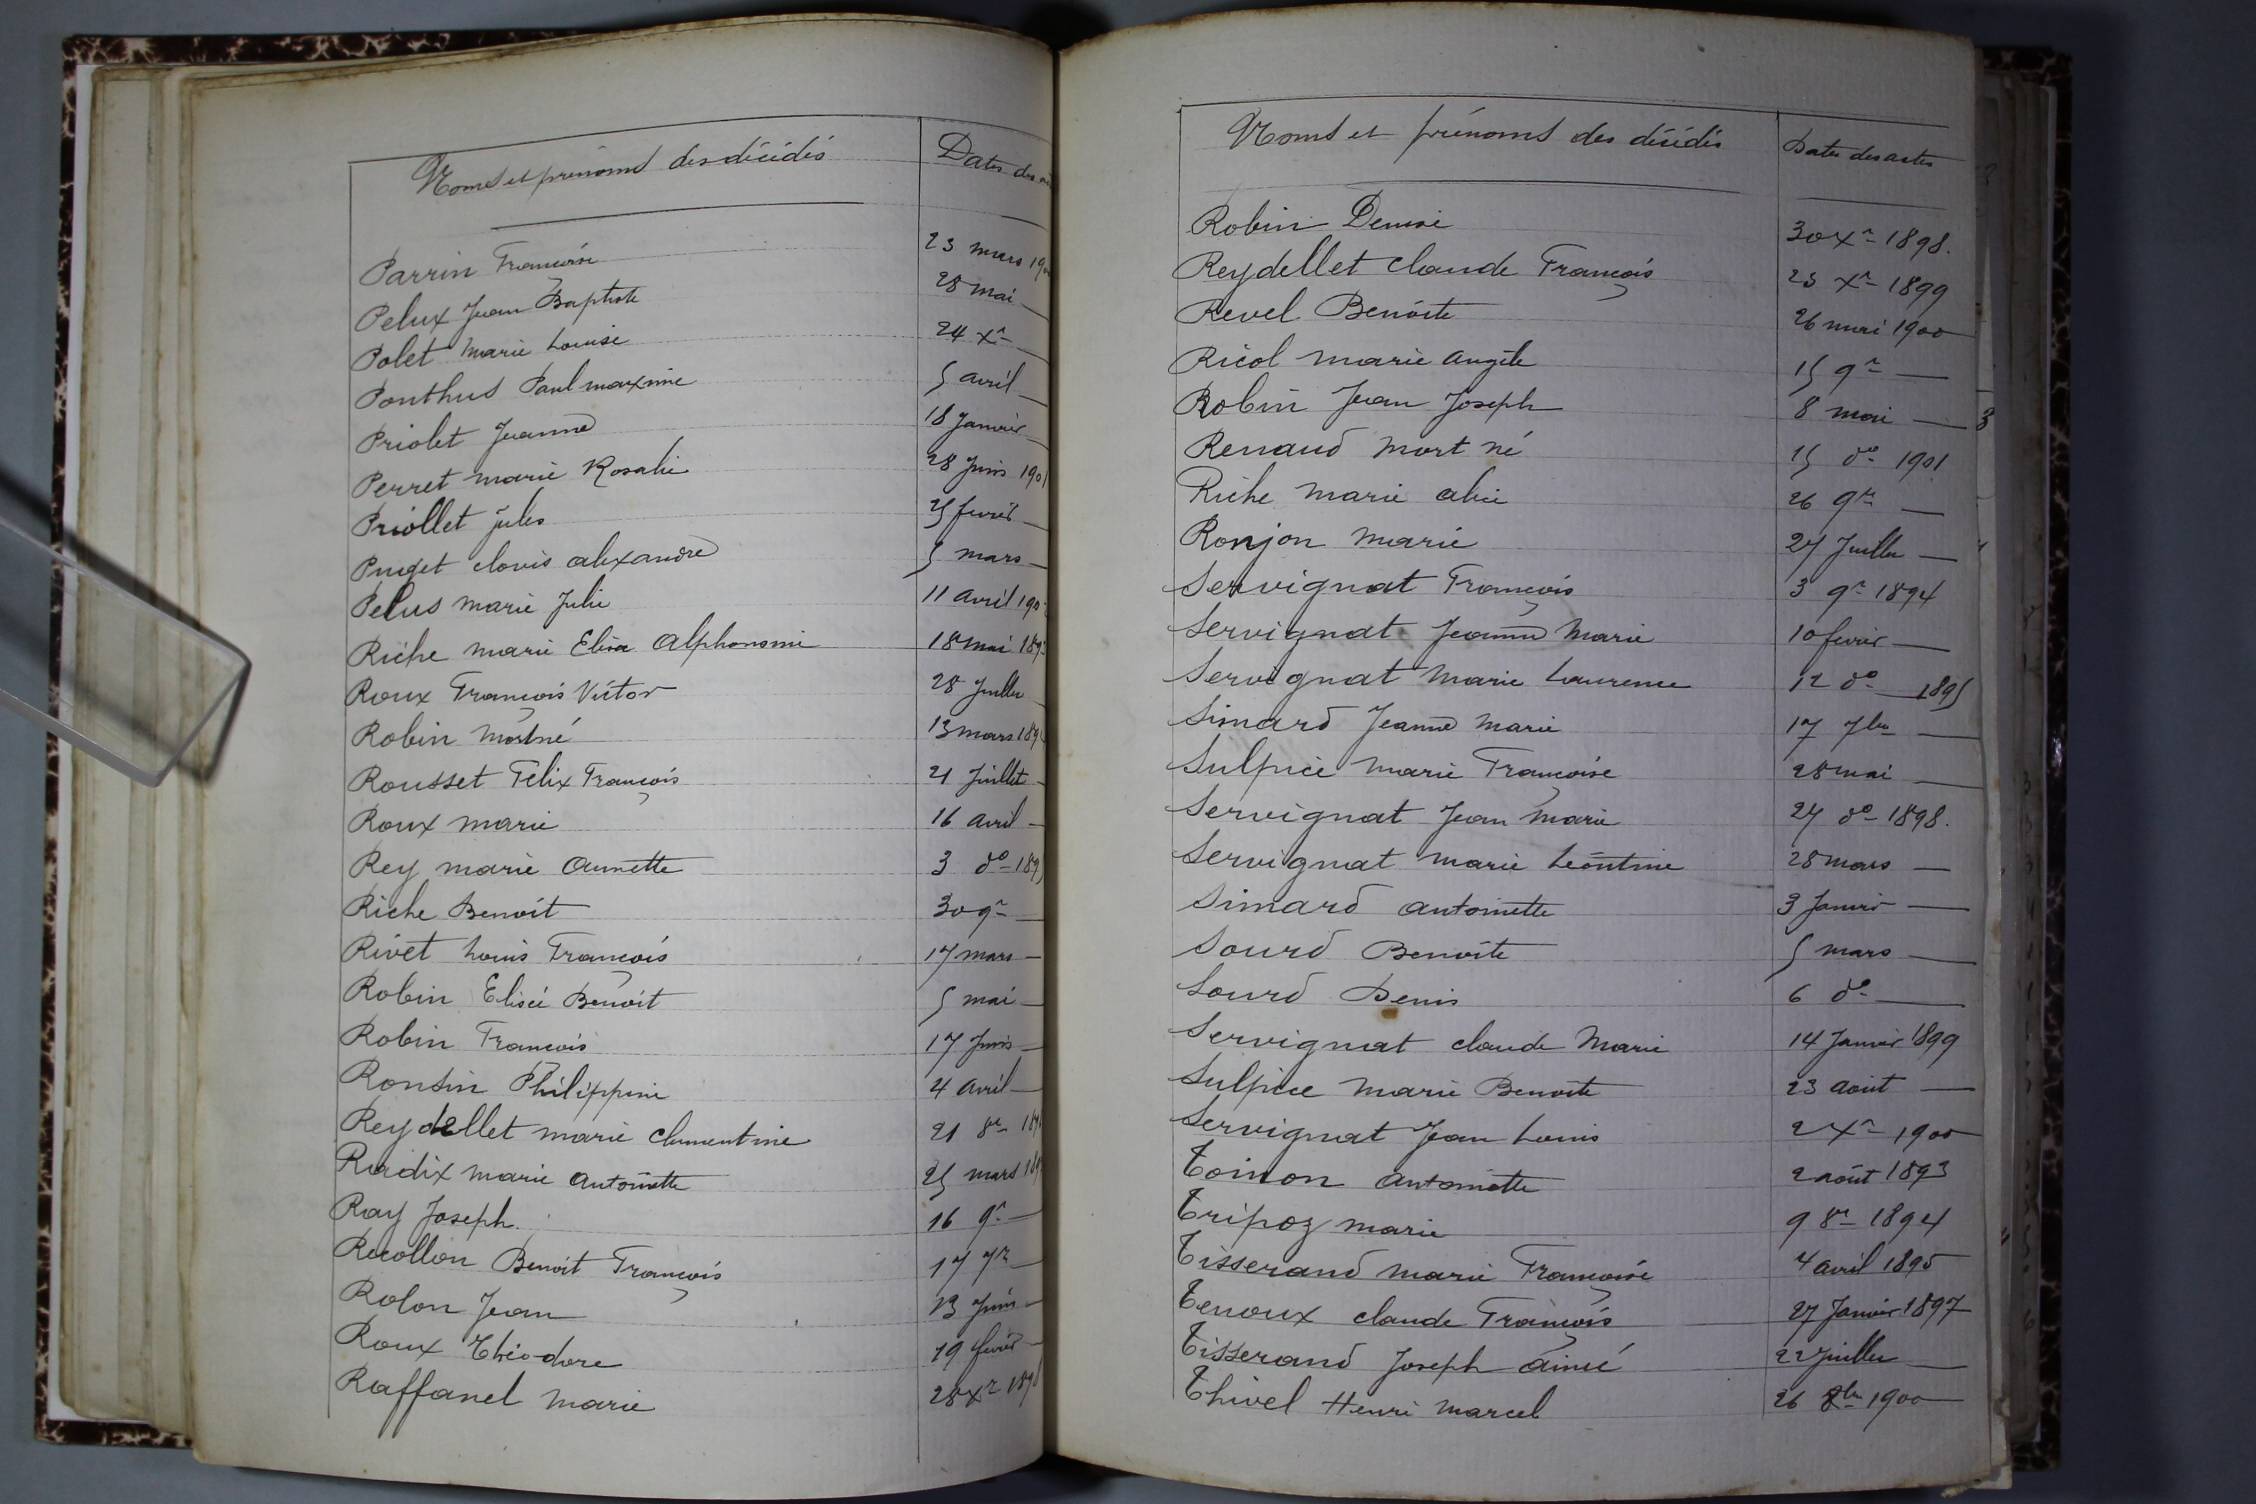 Noms et prénoms des décédés Dates des
Parrin Françoise 23 mars
Pelux Jean Baptiste 28 mai —
Polet Marie Louise 24 Xre —
Ponthus Paul maxime 5 avril —
Priolet Jeanne 18 Janvier —
Perret marie Rosalie 28 Juin 1901
Priollet Jules 25 fevrier —
Puget clovis alexandre 5 mars —
Pelus marie Julie 11 avril
Riche marie Elisa Alphonsine 18 mai
Roux François Victor 28 Juillet
Robin Mort né 13 mars
Rousset Felix François 21 Juillet —
Roux marie 16 avril —
Rey marie Annette 3 do
Riche Benoit 30 9re —
Rivet Louis François 17 mars —
Robin Elisée Benoit 5 mai —
Robin François 17 Juin —
Ronsin Philippine 4 avril —
Reydellet marie clementine 21 8re
Radix marie Antoinette 25 mars
Ray Joseph. 16 9re —
Recollon Benoit François 17 7re —
Rolon Jean 13 Juin —
Roux Théodore 19 fevrier —
Raffanel Marie 28 Xre
Noms et prénoms des décédés Dates des actes
Robin Denise 30 Xre 1898.
Reydellet claude François 23 Xre 1899
Revel Benoite 26 mai 1900
Ricol marie angèle 15 9re —
Robin Jean Joseph 8 mai —
Renaud mort né 15 do 1901
Riche marie alice 26 9re —
Ronjon marie 27 Juillet —
Servignat François 3 9re 1894
Servignat Jeanne Marie 10 fevrier —
Servignat Marie Laurence 12 do — 1895
Simard Jeanne Marie 17 7bre —
Sulpice Marie Françoise 28 mai —
Servignat Jean Marie 27 do 1898.
Servignat marie Léontine 28 mars —
Simard antoinette 3 Janvier —
Sourd Benoite 5 mars —
Sourd Denis 6 do —
Servignat claude Marie 14 Janvier 1899
Sulpice Marie Benoite 23 aout —
Servignat Jean Louis 2 Xre 1900
Toinon Antoinette 2 août 1893
Tripoz marie 9 8re 1894
Tisserand marie Françoise 4 avril 1895
Tenoux claude François 27 Janvier 1897
Tisserand Joseph aimé 22 Juillet —
Thivel Henri Marcel 26 8bre 1900